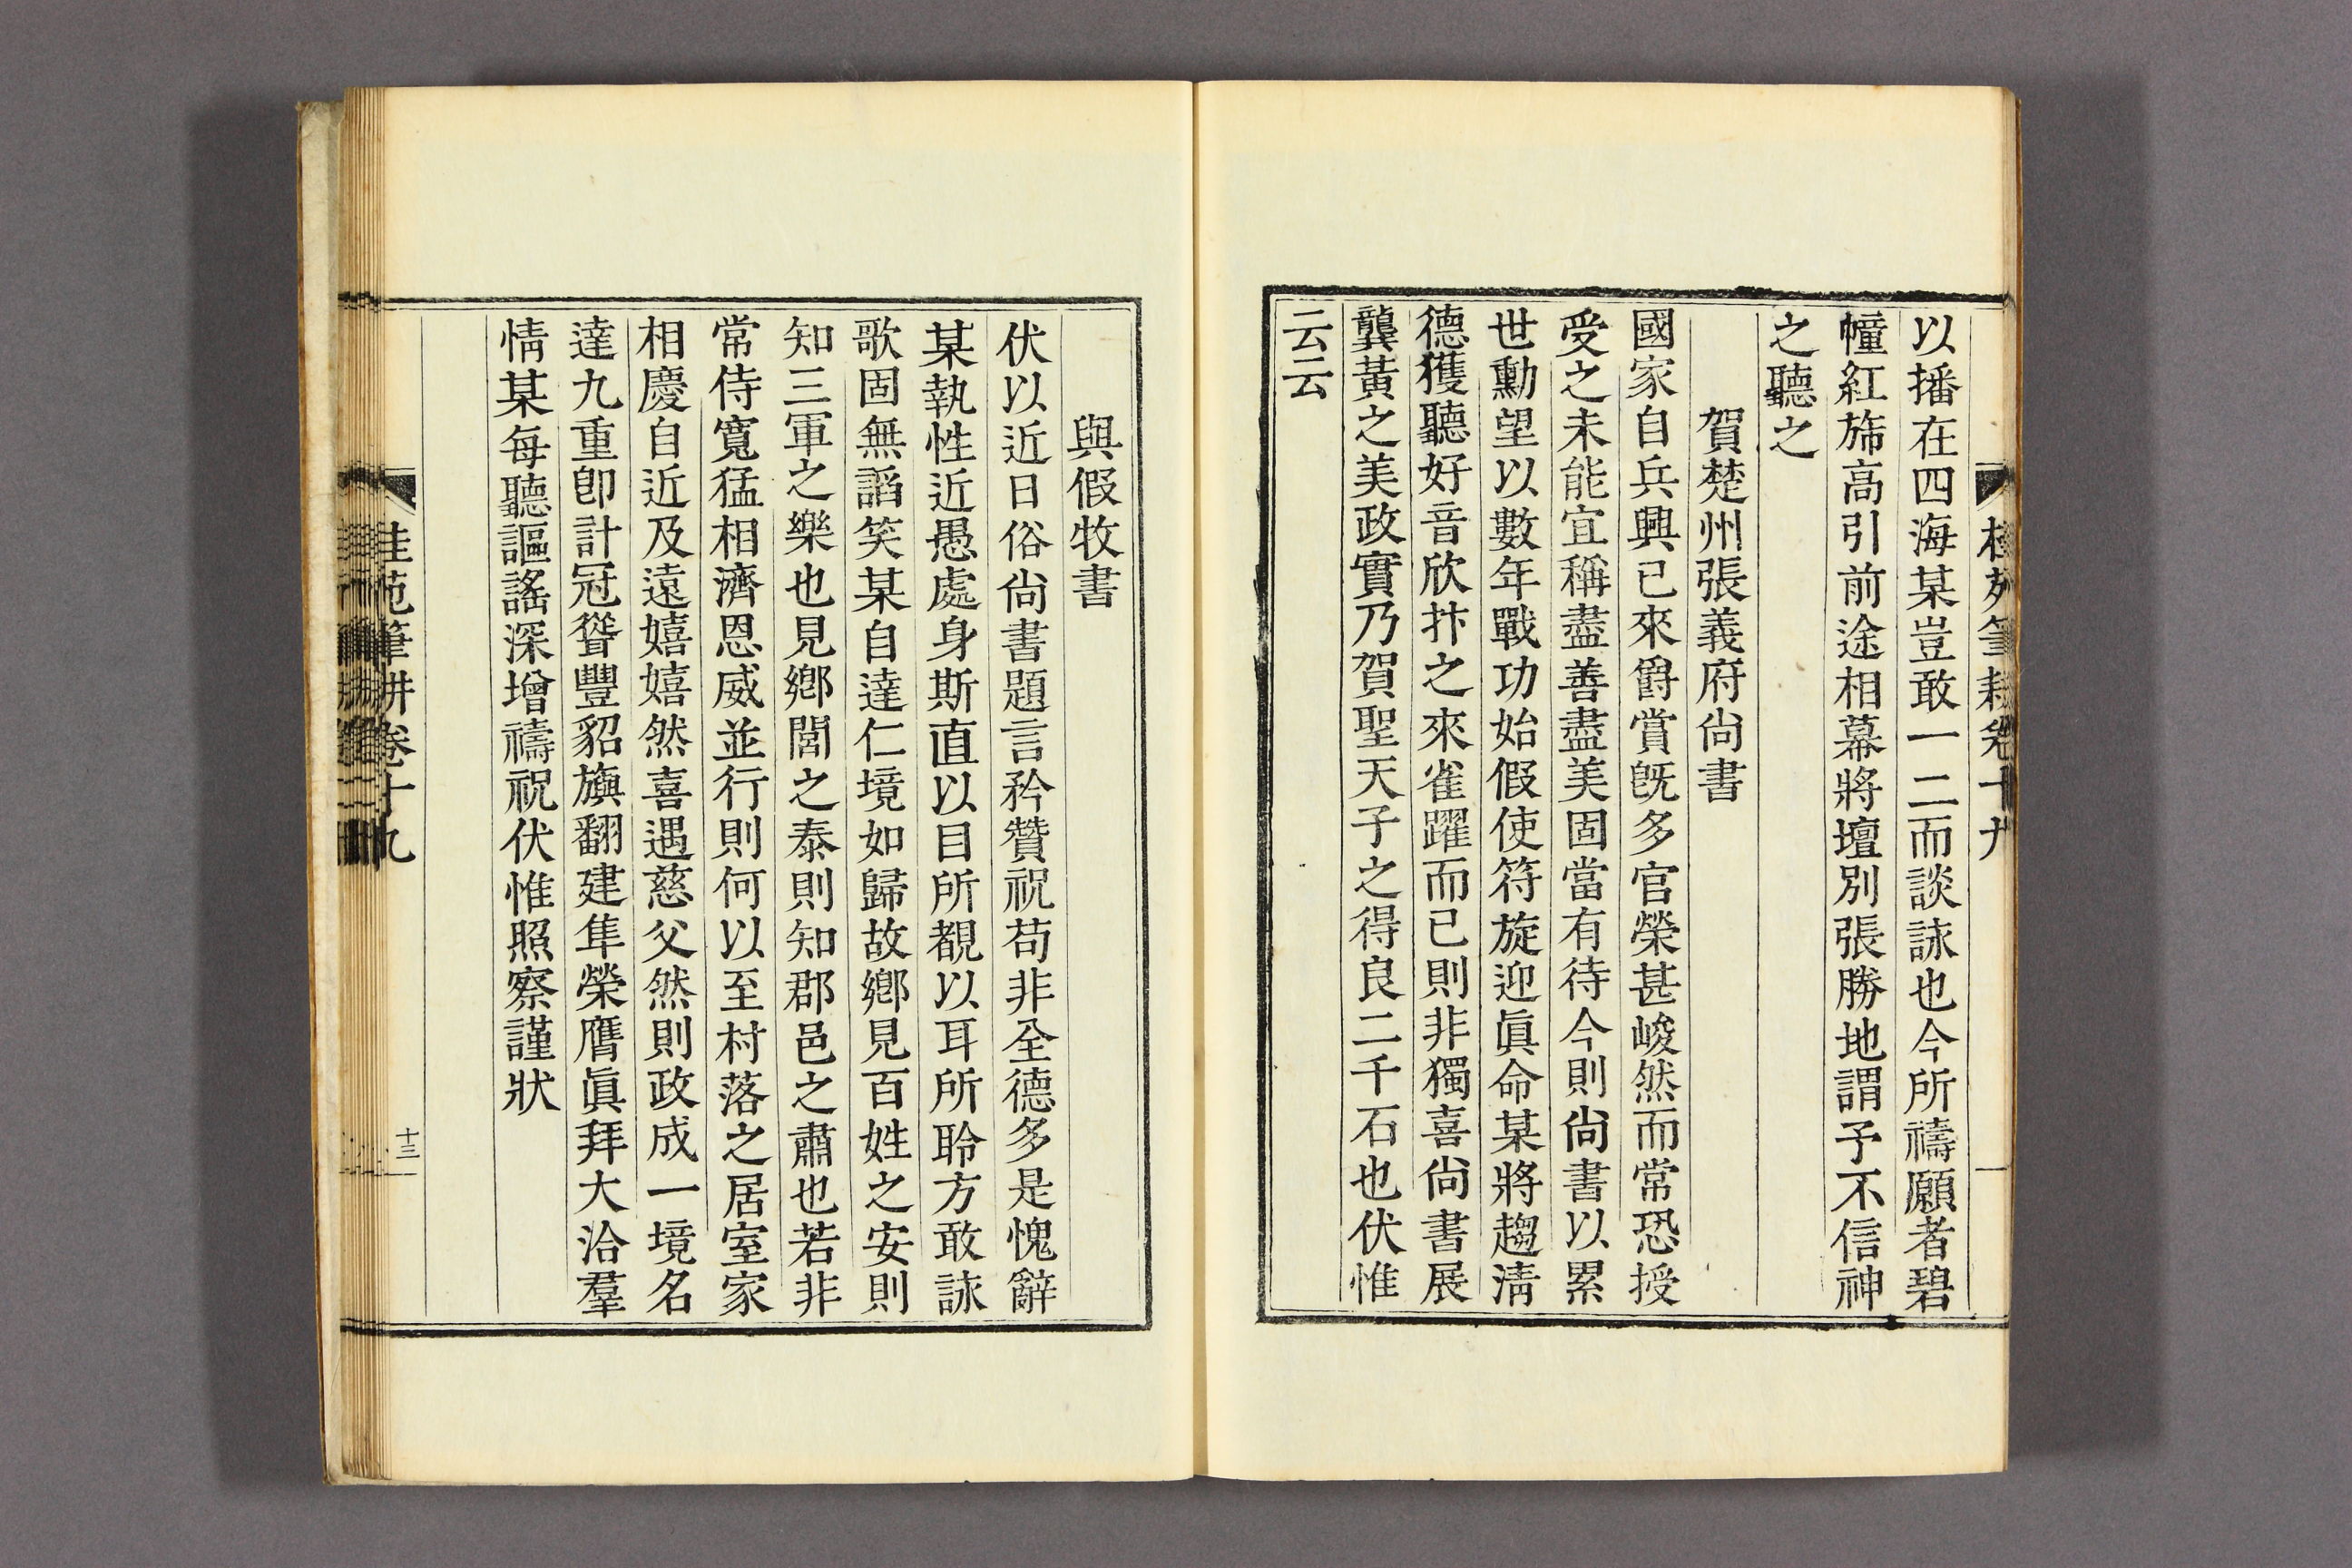 桂苑筆耕卷十九
以播在四海某豈敢一二而談詠也今所禱願者碧
幢紅旆高引前途相幕將壇別張勝地謂予不信神
之聽之
賀楚州張義府尙書
國家自兵興已來爵賞旣多官榮甚峻然而常恐授
受之未能宜稱盡善盡美固當有待今則尙書以累
世勳望以數年戰功始假使符旋迎眞命某將趨淸
德獲聽好音欣抃之來雀躍而已則非獨喜尙書展
龔黃之美政實乃賀聖天子之得良二千石也伏惟
云云
與假牧書
伏以近日俗尙書題言矜贊祝苟非全德多是愧辭
某執性近愚處身斯直以目所覩以耳所聆方敢詠
歌固無謟笑某自達仁境如歸故鄕見百姓之安則
知三軍之樂也見鄕閭之泰則知郡邑之肅也若非
常侍寬猛相濟恩威並行則何以至村落之居室家
相慶自近及遠嬉嬉然喜遇慈父然則政成一境名
達九重卽計冠聳豐貂旟翻建隼榮膺眞拜大洽羣
情某每聽謳謠深增禱祝伏惟照察謹狀
桂苑筆耕卷十九
十三